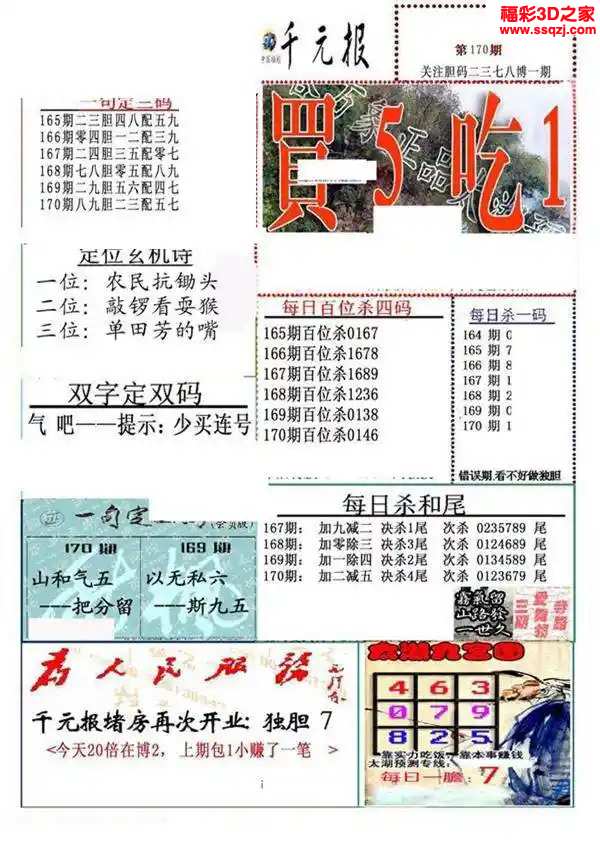 福彩3D之家
www.ssqzj.com
千元报
第170期
关注胆码二三七八博一期
一句定三码
165期二三胆四八配五九
166期零四胆一二配三九
167期二四胆三五配零七
168期七八胆零五配八九
169期二九胆五六配四七
170期八九胆二三配五七
買5吃1
定位玄机诗
一位：农民抗锄头
二位：敲锣看耍猴
三位：单田芳的嘴
每日百位杀四码
165期百位杀0167
166期百位杀1678
167期百位杀1689
168期百位杀1236
169期百位杀0138
170期百位杀0146
每日杀一码
164 期 0
165 期 7
166 期 8
167 期 1
168 期 2
169 期 0
170 期 1
错误期,看不好做独胆
双字定双码
气 吧——提示：少买连号
一句定
(会员版)
170期
山和气五
---把分留
169期
以无私六
---斯九五
每日杀和尾
167期： 加九减二 决杀1尾 次杀 0235789 尾
168期： 加零除三 决杀3尾 次杀 0124689 尾
169期： 加一除四 决杀2尾 次杀 0134589 尾
170期： 加二减五 决杀4尾 次杀 0123679 尾
为人民服务
千元报堵房再次开业: 独胆 7
<今天20倍在博2，上期包1小赚了一笔>
太湖九宫图
4 6 3
0 7 9
8 2 5
靠实力吃饭,靠本事赚钱
太湖预测专线:
每日一胆: 7